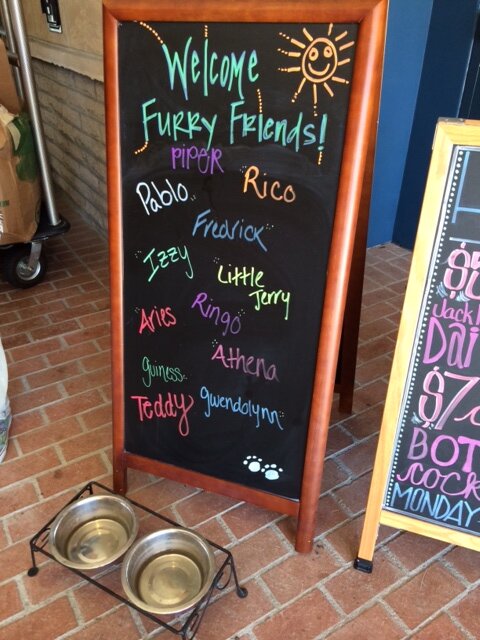 Welcome
Furry Friends!
Piper
Pablo
Rico
Fredrick
Izzy
Little
Jerry
Aries
Ringo
Athena
Guiness
Teddy
Gwendolynn
$7
BOT
MONDAY